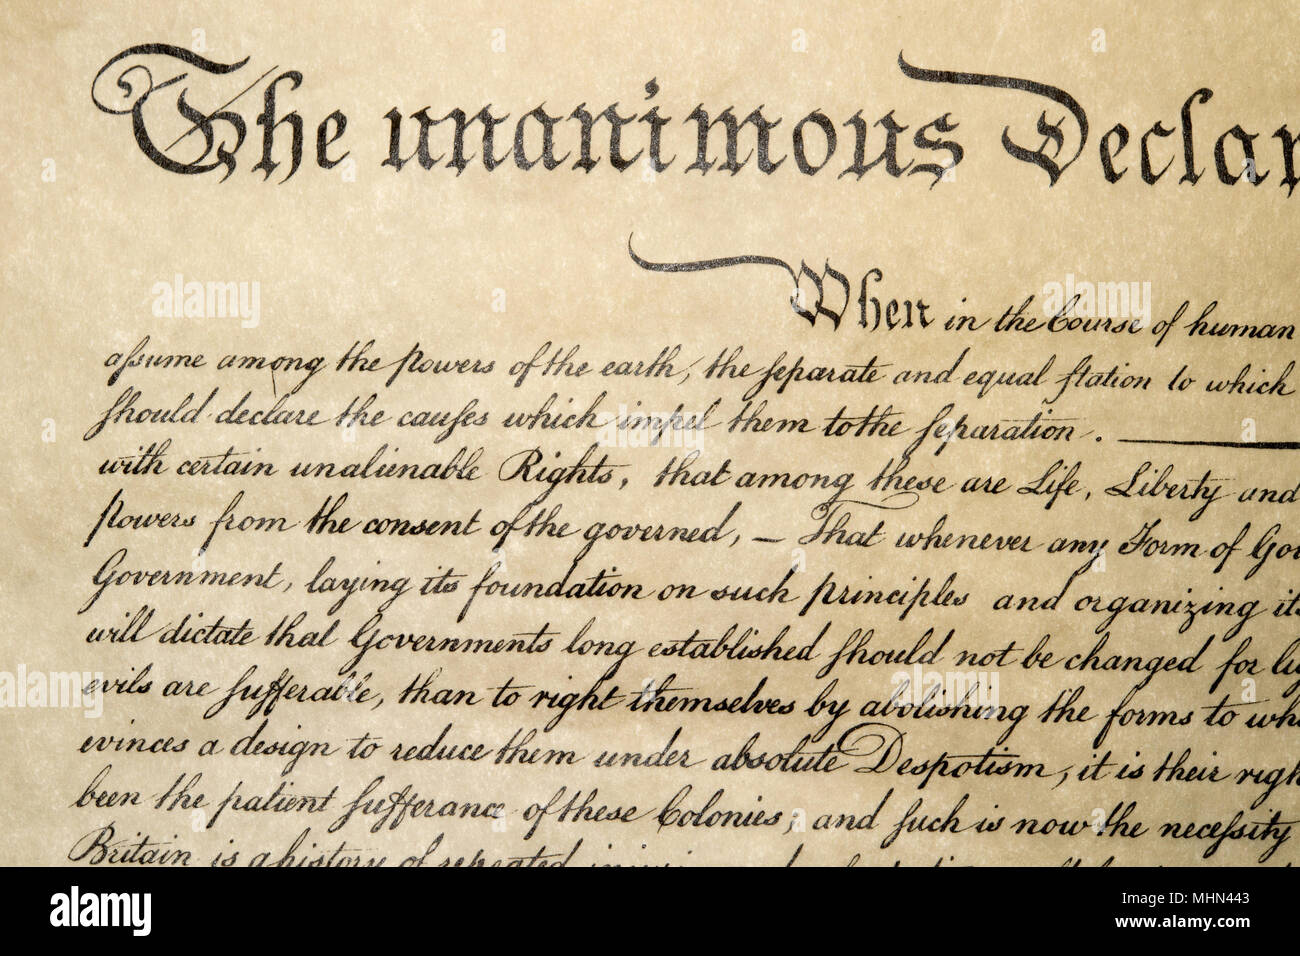 The unanimous Declar
When in the Course of human
aſsume among the powers of the earth, the ſeparate and equal ſtation to which
ſhould declare the cauſes which impel them to the ſeparation.
with certain unalienable Rights, that among these are Life, Liberty and
powers from the consent of the governed, — That whenever any Form of Gov
Government, laying its foundation on such principles and organizing its
will dictate that Governments long established ſhould not be changed for lig
evils are ſufferable, than to right themselves by abolishing the forms to whi
evinces a design to reduce them under absolute Despotism, it is their righ
been the patient ſufferance of these Colonies; and ſuch is now the neceſsity
Britain is a history of repeated
alamy
Image ID: MHN443
www.alamy.com